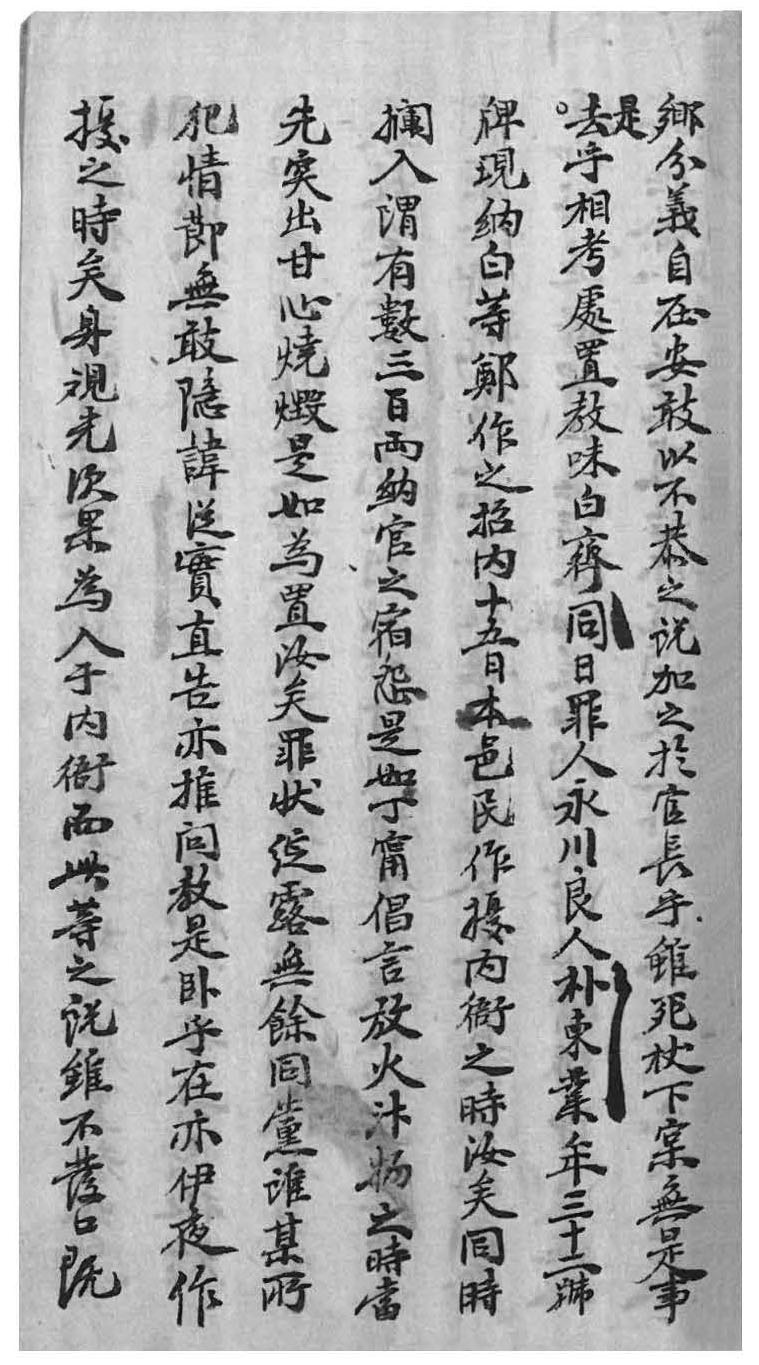 鄉分義自在安敢以不恭之說加之於官長乎雖死杖下宲無是事
是去乎相考處置敎味白齊同日罪人永川良人朴東業年三十二號
牌現納白等鄭作之招內十五日本邑民作擾內衙之時汝矣同時
攔入謂有數三百兩納官之宿怨是如丁甯倡言放火汁物之時當
先突出甘心燒燬是如爲置汝矣罪狀綻露無餘同黨誰某所
犯情節無敢隱諱從實直告亦推問敎是臥乎在亦伊夜作
擾之時矣身視先次果爲入于內衙而此等之說雖不發口旣